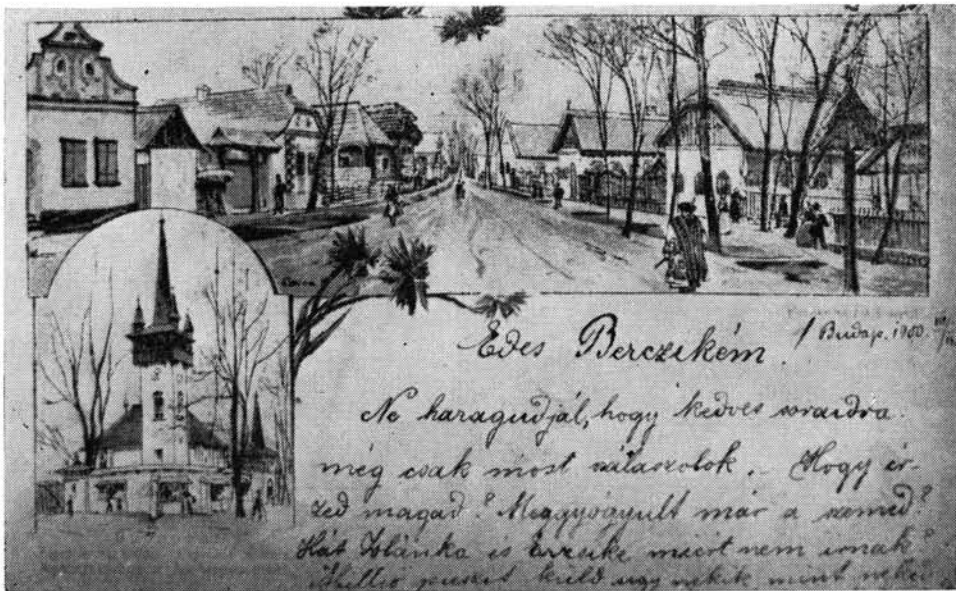 Édes Berczikém! Budap. 1900.
Ne haragudjál, hogy kedves soraidra
még csak most válaszolok. – Hogy ér-
zed magad? Meggyógyult már a szemed?
Hát Jolánka és Erzsike miért nem irnak?
Millió puszit küld ugy nekik mint neked